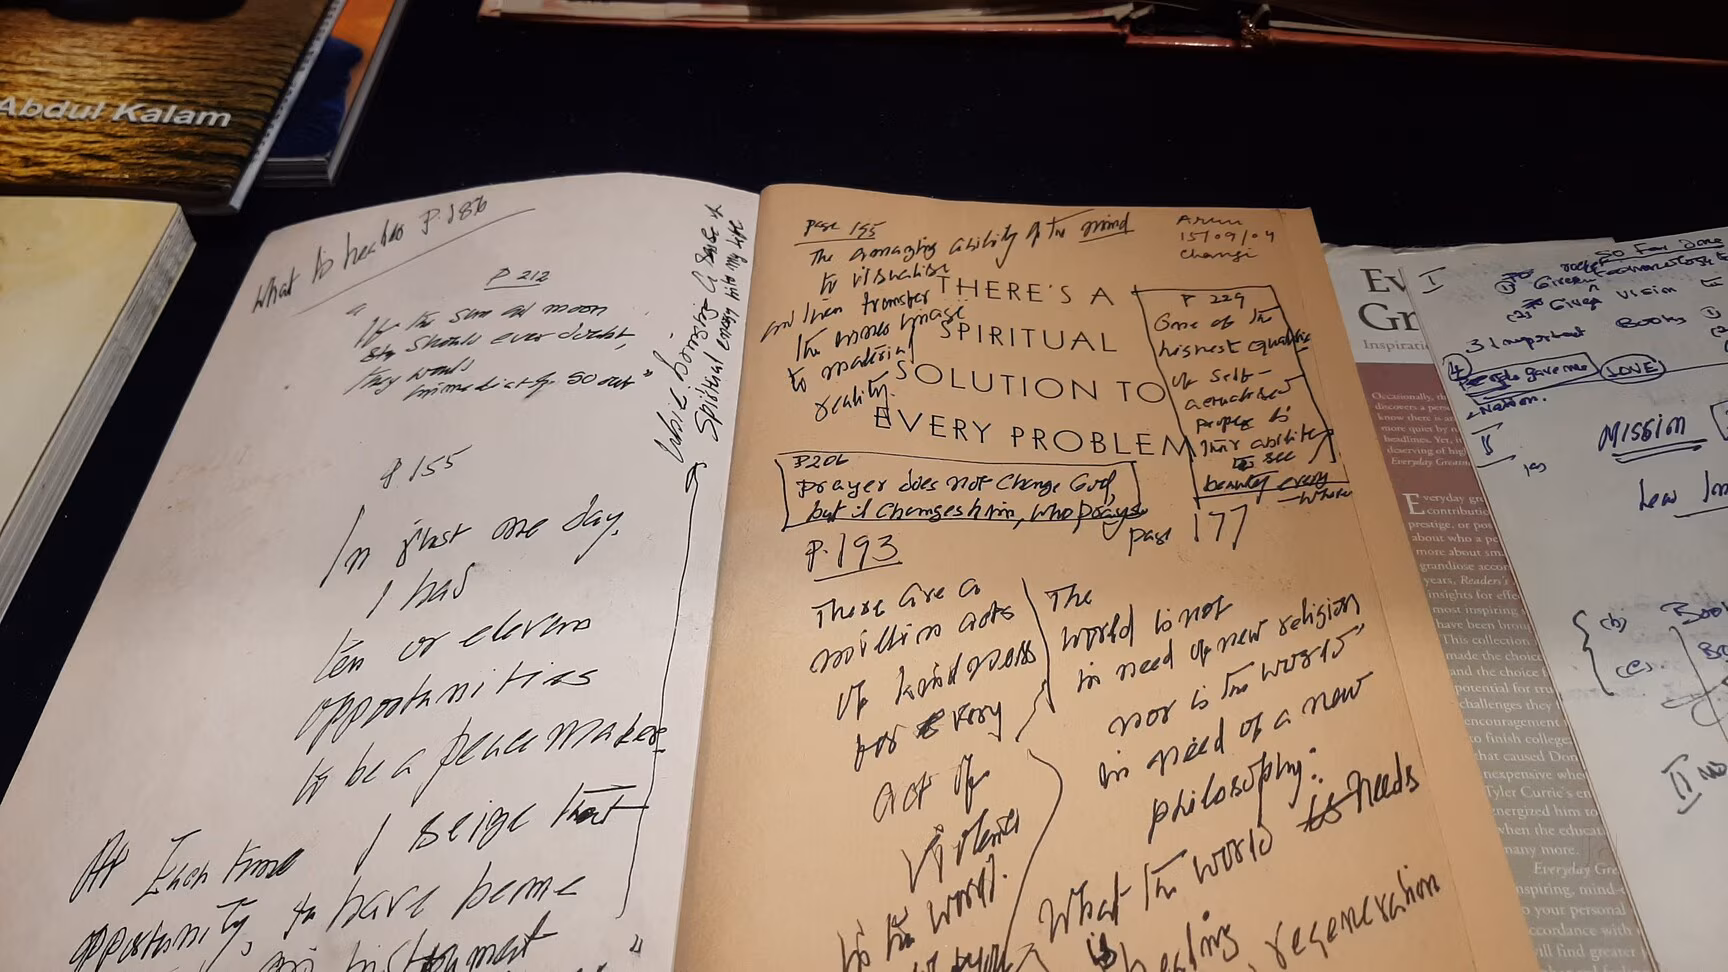 Abdul Kalam
What is P.186
P 212
"If the sun and moon
should ever doubt,
they would
immediately go out"
P 155
In just one day,
I had
ten or eleven
opportunities
to be a peace maker
I seize that
At Each time
opportunity, to have become
an instrument
"
a sense of
Spiritual energy into my life
page 155
The amazing ability of the mind
to visualise
and then transfer
the inner image
to material
reality.
Arun
15/09/04
Changi
THERE'S A
SPIRITUAL
SOLUTION TO
EVERY PROBLEM
P 229
One of the
highest qualities
of self-
actualised
people is
their ability
to see
beauty every
-where
P206
prayer does not change God,
but it changes him, who prays
page 177
P.193
There are a
million acts
of kindness
for every
act of
violence
in the world.
The
world is not
in need of new religion
nor is the world
in need of a new
philosophy:
What the world needs
is healing, regeneration
Ev
Gr
Inspirati
Occasionally, th
discovers a pers
know there is a
more quiet by n
headlines. Yet, i
deserving of hig
Everyday Greatn
Everyday gre
contributio
prestige, or pos
about who a pe
more about sm
grandiose accor
years, Reader's
insights for effe
most inspiring
have been
This collection
made the choice
and the choice t
potential for tru
challenges they
encouragement
to finish college
that caused Don
nexpensive whe
Tyler Currie's en
energized him to
when the educat
many more.
Everyday Grea
nspiring, mind-e
o your personal
ccordance with
ill find greater
So Far Done
I
Given
Given vision
3 Important Books
(4) People gave me LOVE
Nation.
II
MISSION
(a)
(b) Boo
(c)
II